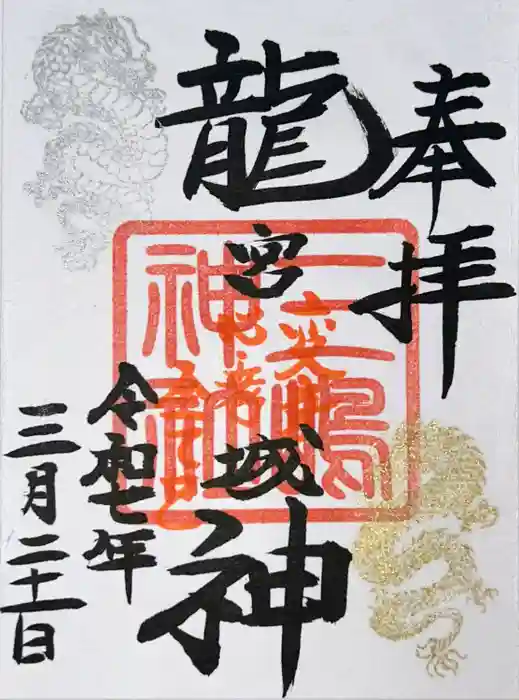 奉拝
龍宮城神
三嶋神社
令和七年
三月二十一日